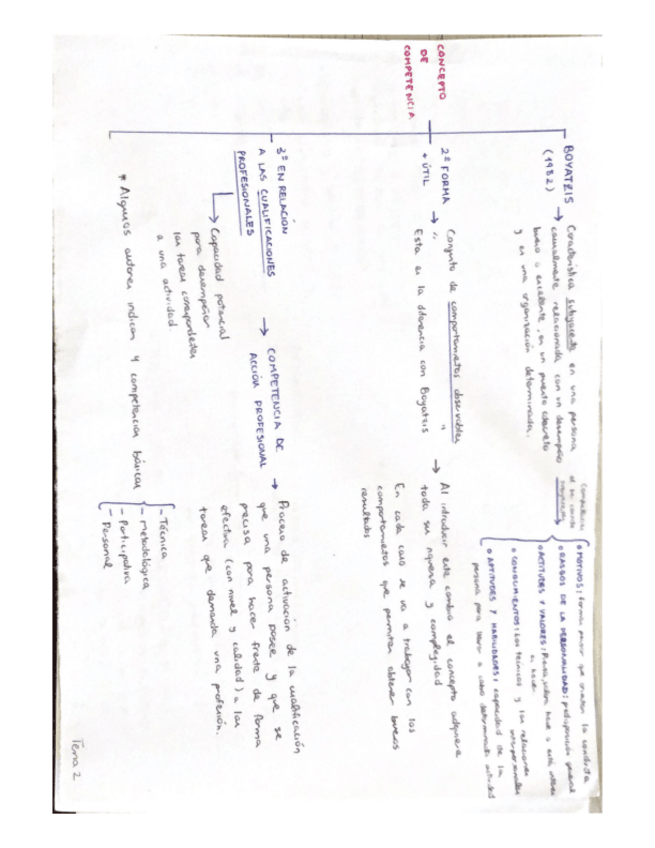 CONCEPTO
DE
COMPETENCIA
BOYATZIS
(1982)
→ Característica subyacente en una persona
causalmente relacionada con un desempeño
bueno o excelente, en un puesto concreto
y en una organización determinada.
o MOTIVOS: que orientan la conducta
o RASGOS DE LA PERSONALIDAD: predisposición general
o ACTITUDES Y VALORES:
o CONOCIMIENTOS: Los técnicos y las relaciones
interpersonales
o APTITUDES Y HABILIDADES: capacidad de la
persona para llevar a cabo determinada actividad
2ª FORMA
+ ÚTIL
→ " Conjunto de comportamientos observables "
Esta es la diferencia con Boyatzis
→ Al introducir este cambio el concepto adquiere
toda su riqueza y complejidad
En cada caso se va a trabajar con los
comportamientos que permitan obtener buenos
resultados
3ª EN RELACIÓN
A LAS CUALIFICACIONES
PROFESIONALES
→ Capacidad potencial
para desempeñar
las tareas correspondientes
a una actividad
→ COMPETENCIA DE
ACCIÓN PROFESIONAL
→ Proceso de activación de la cualificación
que una persona posee y que se
precisa para hacer frente de forma
efectiva (con nivel y calidad) a las
tareas que demanda una profesión.
* Algunos autores indican 4 competencias básicas
- Técnica
- Metodológica
- Participativa
- Personal
Tema 2